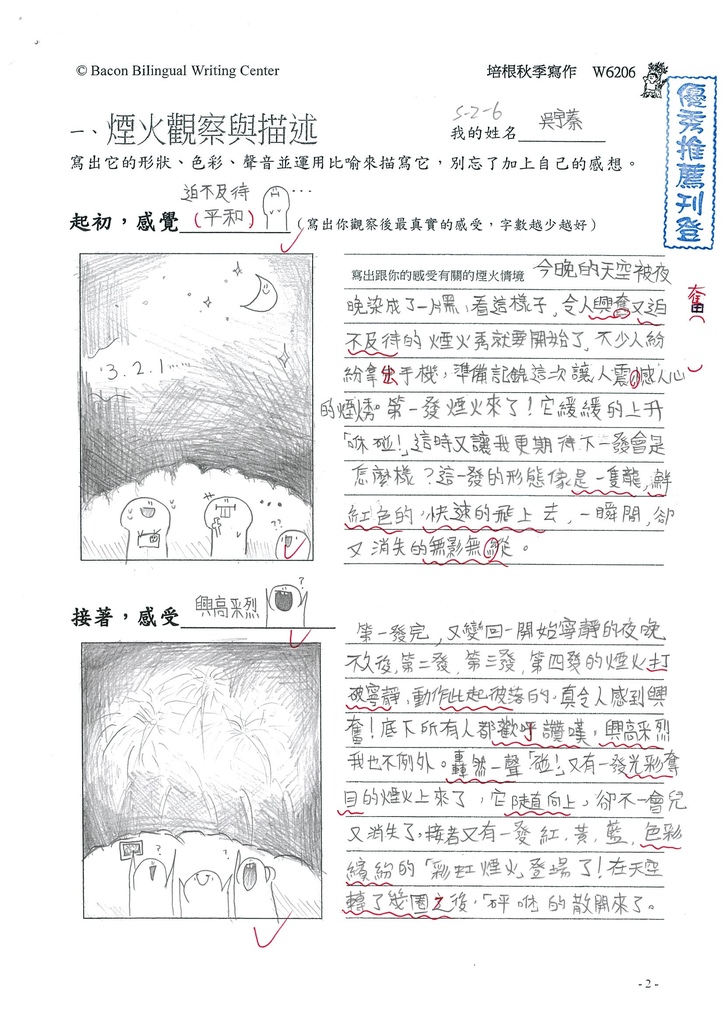 © Bacon Bilingual Writing Center
培根秋季寫作 W6206
優秀推薦刊登
5-2-6
一、煙火觀察與描述
我的姓名
寫出它的形狀、色彩、聲音並運用比喻來描寫它，別忘了加上自己的感想。
迫不及待 …
起初，感覺（平和）（寫出你觀察後最真實的感受，字數越少越好）
3.2.1……
寫出跟你的感受有關的煙火情境 今晚的天空被夜
晚染成了一片黑，看這樣子，令人興奮又迫
奮
不及待的煙火秀就要開始了，不少人紛
紛拿出手機，準備記錄這次讓人震感人心
的煙火秀。第一發煙火來了！它緩緩的上升
「咻碰！」這時又讓我更期待下一發會是
怎麼樣？這一發的形態像是一隻龍，鮮
紅色的，快速的飛上去，一瞬間，卻
又消失的無影無縱。
接著，感受 興高采烈
第一發完，又變回一開始寧靜的夜晚
不久後，第二發、第三發、第四發的煙火打
破寧靜，動作此起彼落的，真令人感到興
奮！底下所有人都歡呼讚嘆，興高采烈
我也不例外。轟然一聲「碰！」又有一發光彩奪
目的煙火上來了，它陡直向上，卻不一會兒
又消失了，接著又有一發紅、黃、藍，色彩
繽紛的「彩虹煙火」登場了！在天空
轉了幾圈之後，「砰咻」的散開來了。
- 2 -